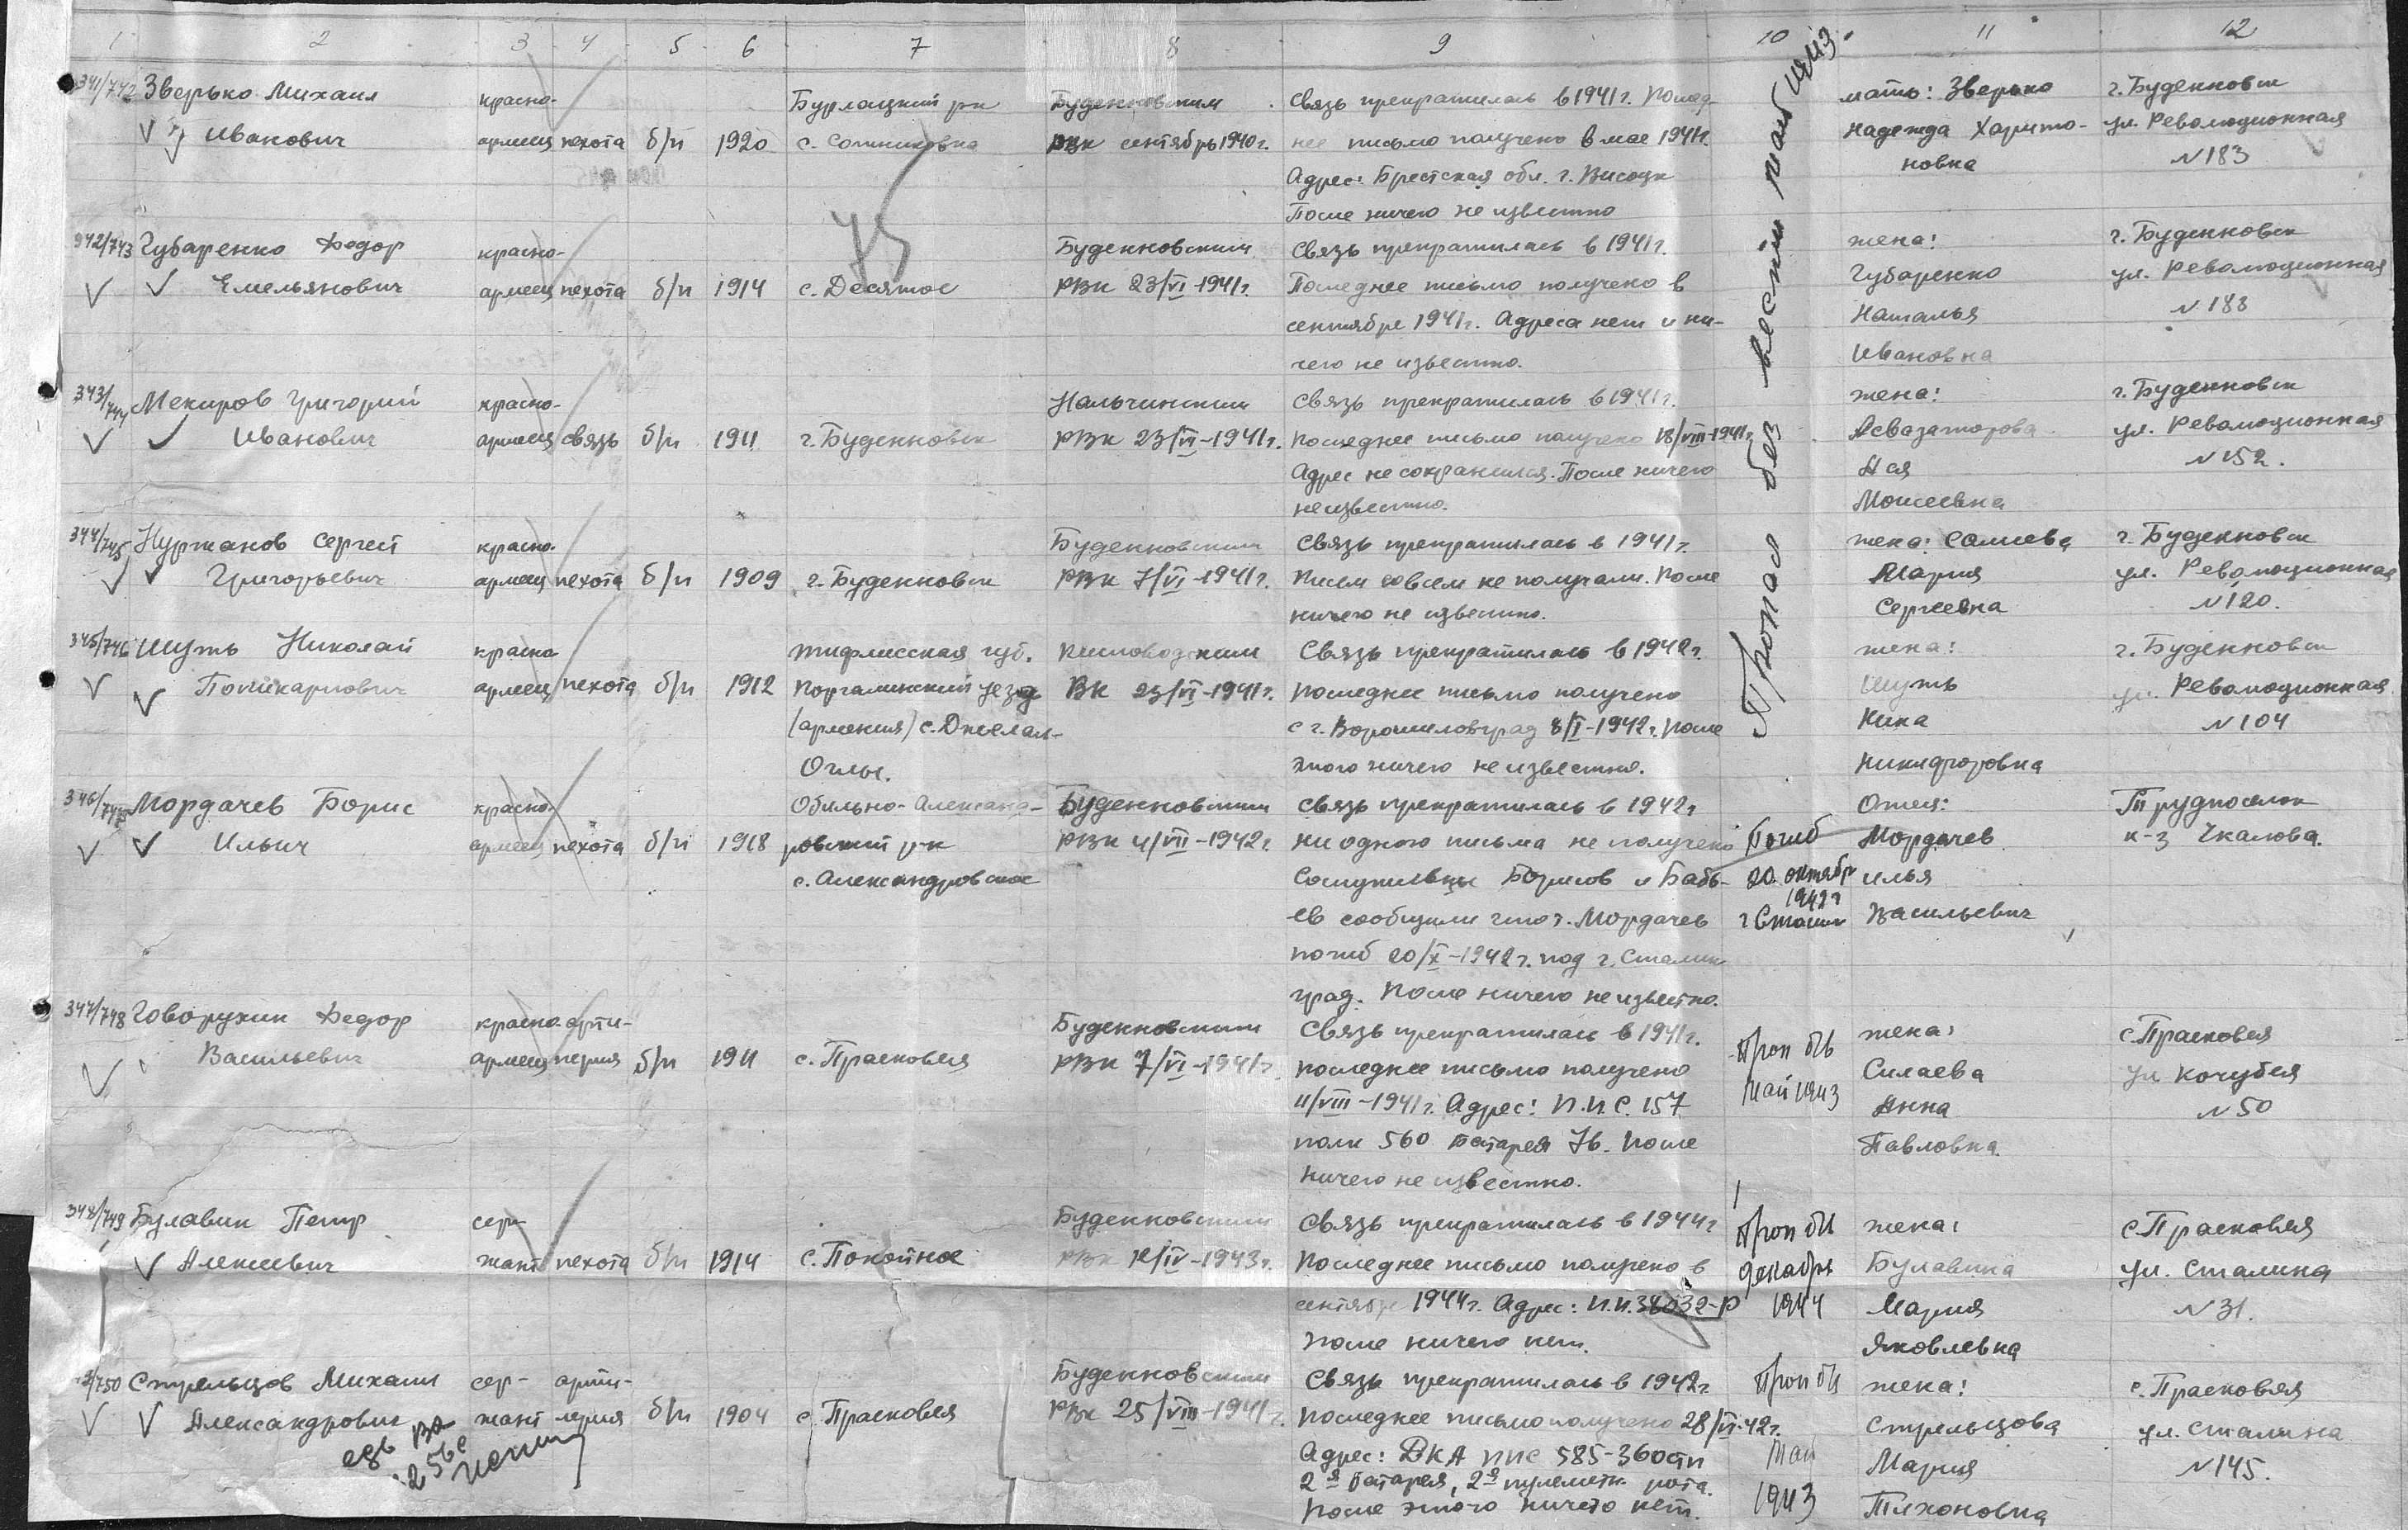 1 2 3 4 5 6 7 8 9 10 11 12
341/742 Зверько Михаил красно- Бурлацкий р-н Буденновским Связь прекратилась в 1941 г. Послед- мать: Зверько г. Буденновск
Иванович армеец пехота б/п 1920 с. Сотниковка РВК сентябрь 1940 г. нее письмо получено в мае 1941 г. Надежда Харито- ул. Революционная
Адрес: Брестская обл. г. Высоцк новка №183
После ничего не известно
75
Пропал без вести май 1943
342/743 Губаренко Федор красно- Буденновским Связь прекратилась в 1941 г. жена: г. Буденновск
Емельянович армеец пехота б/п 1914 с. Десятое РВК 23/VI-1941 г. Последнее письмо получено в Губаренко ул. Революционная
сентябре 1941 г. Адреса нет и ни- Наталья №188
чего не известно. Ивановна
343/744 Мекиров Григорий красно- Нальчинским Связь прекратилась в 1941 г. жена: г. Буденновск
Иванович армеец связь б/п 1911 г. Буденновск РВК 23/VI-1941 г. Последнее письмо получено 18/VIII-1941 г. Асвазаторова ул. Революционная
Адрес не сохранился. После ничего Ася №152.
неизвестно. Моисеевна
344/745 Нуржанов Сергей красно- Буденновским Связь прекратилась в 1941 г. жена: Салиева г. Буденновск
Григорьевич армеец пехота б/п 1909 г. Буденновск РВК 7/VI-1941 г. Писем совсем не получали. После Мария ул. Революционная
ничего не известно. Сергеевна №120.
345/746 Шуть Николай красно- Тифлисская губ. Кисловодским Связь прекратилась в 1942 г. жена: г. Буденновск
Поликарпович армеец пехота б/п 1912 Поргалинский уезд ВК 23/VI-1941 г. Последнее письмо получено Шуть ул. Революционная
(армения) с. Джелал- с г. Ворошиловград 8/I-1942 г. После Нина №104
Оглы. этого ничего не известно. Никифоровна
346/747 Мордачев Борис красно- Обильно-Александ- Буденновским Связь прекратилась в 1942 г. Отец: Трудпоселок
Ильич армеец пехота б/п 1918 ровский р-н РВК 4/VII-1942 г. Ни одного письма не получено Погиб Мордачев к-з Чкалова.
с. Александровское Сослуживцы Борисов и Бабь- 20 октябр Илья
1942 г
ев сообщили что т. Мордачев г Сталин Васильевич
погиб 20/X-1942 г. под г. Сталин
град. После ничего неизвестно.
347/748 Говорухин Федор красно- арти- Буденновским Связь прекратилась в 1941 г. жена: с. Прасковея
Васильевич армеец лерия б/п 1911 с. Прасковея РВК 7/VI-1941 г. Последнее письмо получено Проп б/в Силаева ул Кочубея
11/VIII-1941 г. Адрес: П.П.С. 157 май 1943 Анна №50
полк 560 батарея 76. После Павловна.
ничего не известно.
348/749 Булавин Петр сер- Буденновским Связь прекратилась в 1944 г. Проп б/в жена: с. Прасковея
Алексеевич жант пехота б/п 1914 с. Покойное РВК 12/IV-1943 г. Последнее письмо получено в декабрь Булавина ул. Сталина
сентябре 1944 г. Адрес: П.П. 34032-Р 1944 Мария №31.
После ничего нет. Яковлевна
/750 Стрельцов Михаил сер- арти- Буденновским Связь прекратилась в 1942 г. Проп б/в жена: с. Прасковея
Александрович жант лерия б/п 1904 с. Прасковея РВК 25/VIII-1941 г. Последнее письмо получено 28/VI-42 г. Стрельцова ул. Сталина
Адрес: ДКА ППС 585-360 сп май Мария №145.
2я батарея, 2я пулеметн. рота.
После этого ничего нет. 1943 Тихоновна